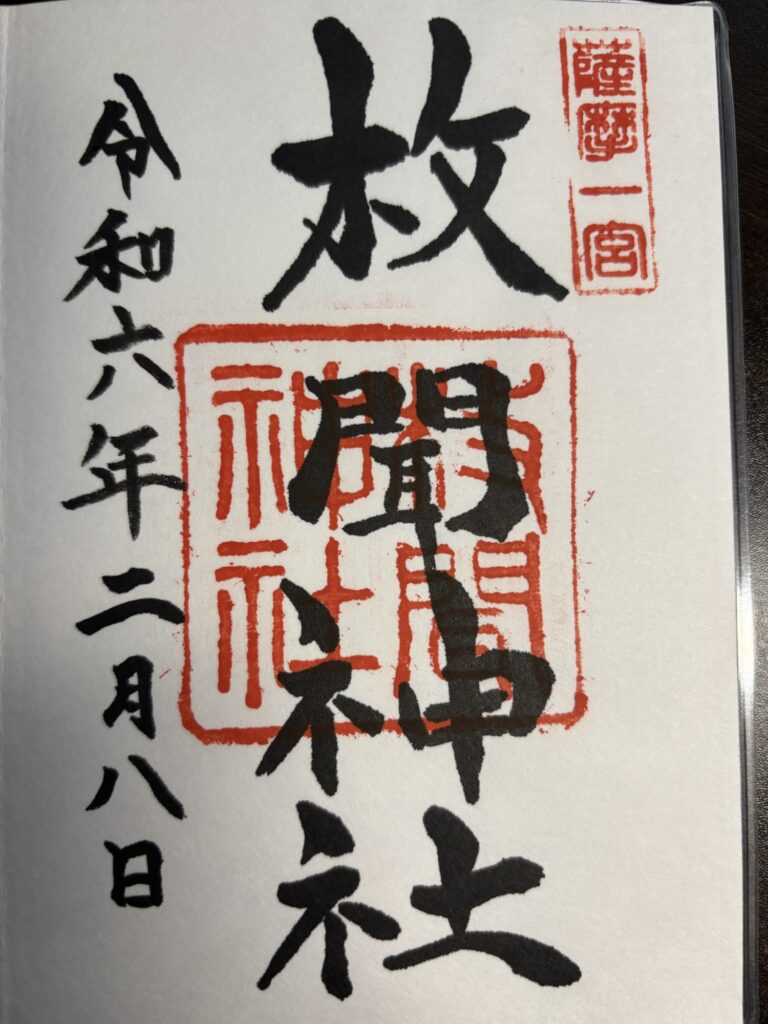 薩摩一宮
枚聞神社
枚聞神社
令和六年二月八日